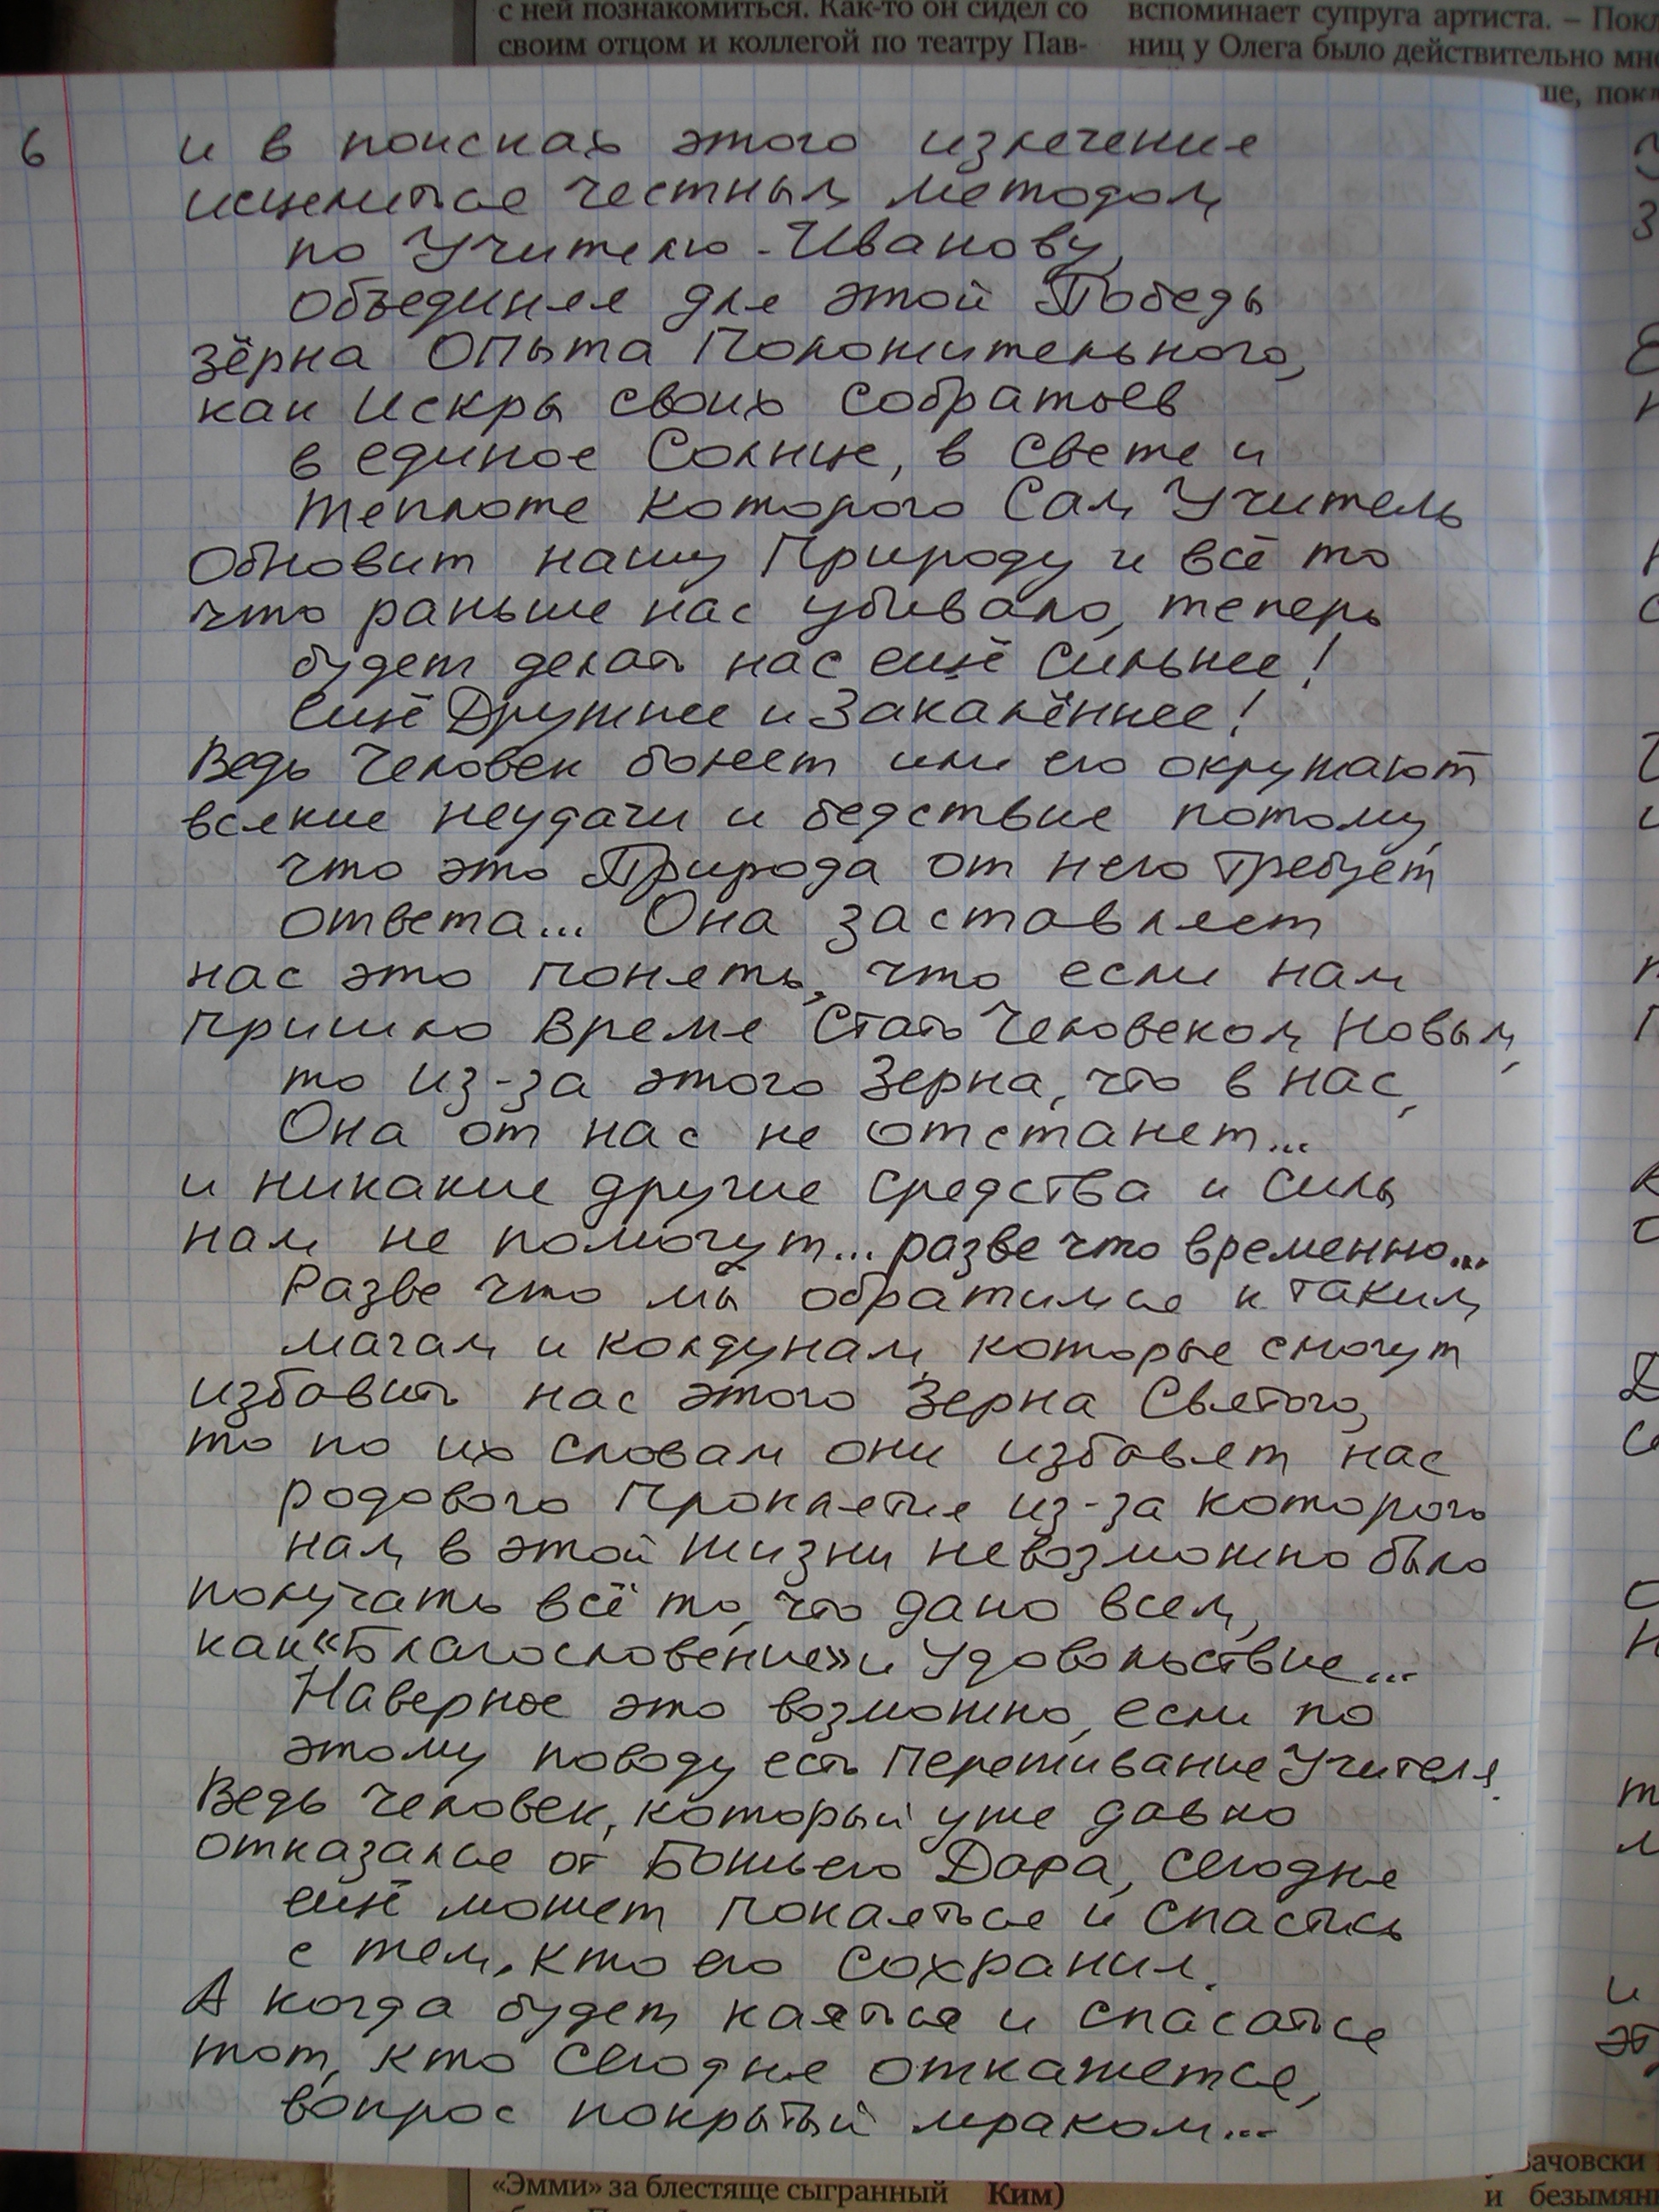 с ней познакомиться. Как-то он сидел со
своим отцом и коллегой по театру Пав-
вспоминает супруга артиста. – Покл
ниц у Олега было действительно мно
ше, покл
6
и в поисках этого излечения
исцелиться честным методом
по Учителю-Иванову,
объединяя для этой Победы
зёрна Опыта Положительного,
как Искры своих собратьев
в единое Солнце, в свете и
теплоте которого Сам Учитель
Обновит нашу Природу и всё то
что раньше нас убивало, теперь
будет делать нас ещё сильнее!
Ещё Дружнее и Закалённее!
Ведь Человек болеет или его окружают
всякие неудачи и бедствия потому,
что это Природа от него требует
ответа... Она заставляет
нас это понять, что если нам
пришло Время Стать Человеком Новым,
то из-за этого Зерна, что в нас,
Она от нас не отстанет...
и никакие другие средства и силы
нам не помогут... разве что временно...
Разве что мы обратимся к таким
магам и колдунам, которые смогут
избавить нас этого Зерна Святого,
то по их словам они избавят нас
родового проклятия из-за которого
нам в этой жизни невозможно было
получать всё то, что дано всем,
как «Благословение» и Удовольствие...
Наверное это возможно, если по
этому поводу есть Переживание Учителя.
Ведь Человек, который уже давно
отказался от Божьего Дара, сегодня
ещё может покаяться и спастись
с тем, кто его сохранил.
А когда будет каяться и спасаться
тот, кто сегодня откажется,
вопрос покрытый мраком...
«Эмми» за блестяще сыгранный
Ким)
вачовски
и безымян